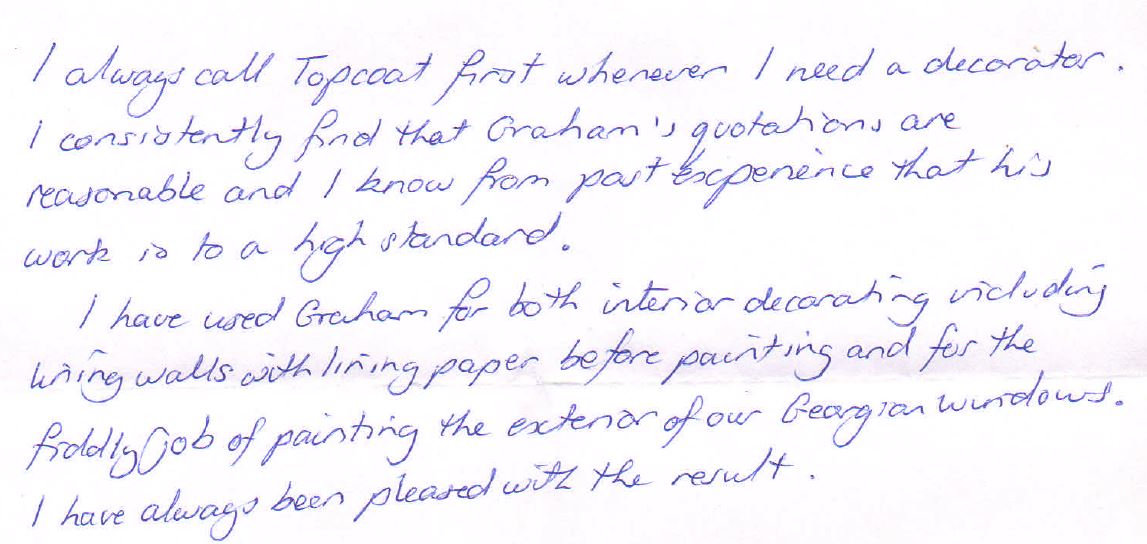 I always call Topcoat first whenever I need a decorator.
I consistently find that Graham's quotations are
reasonable and I know from past experience that his
work is to a high standard.
I have used Graham for both interior decorating including
lining walls with lining paper before painting and for the
fiddly job of painting the exterior of our Georgian windows.
I have always been pleased with the result.